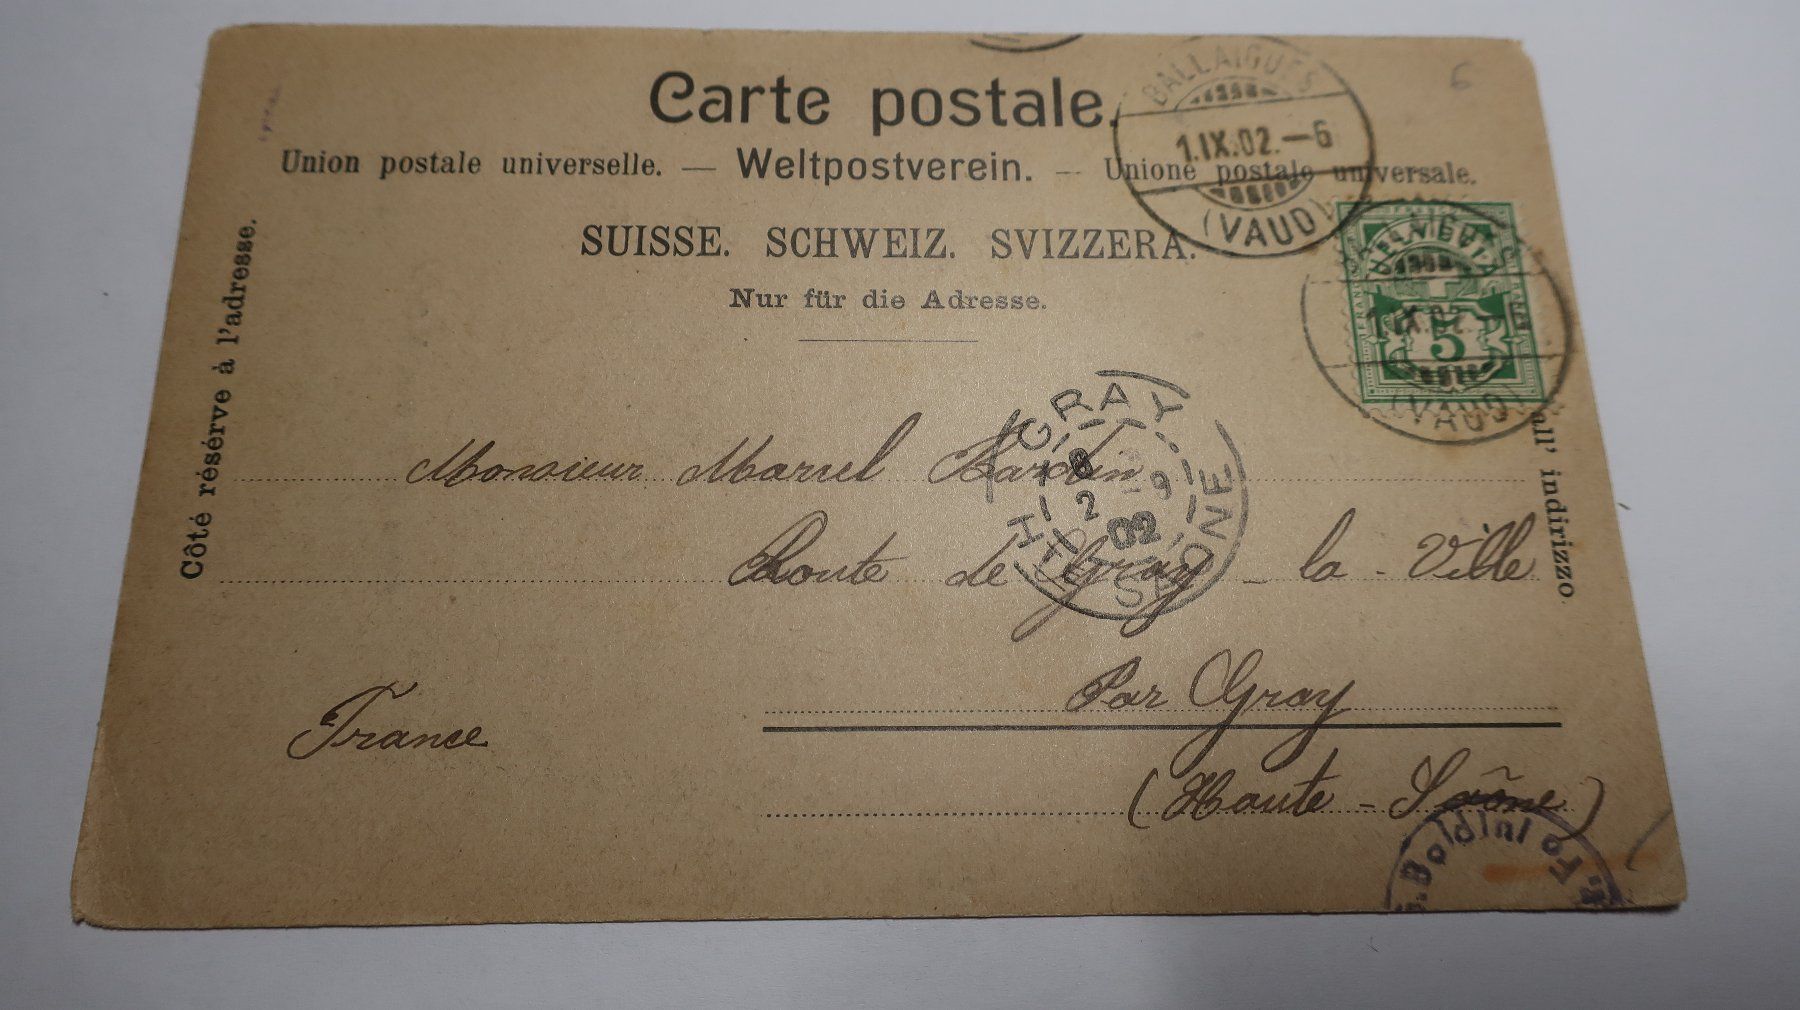 Carte postale.
Union postale universelle. — Weltpostverein. — Unione postale universale.
SUISSE. SCHWEIZ. SVIZZERA.
Nur für die Adresse.
Côté résérve à l'adresse.
all' indirizzo
BALLAIGUES
1.IX.02.–6
(VAUD)
BALLAIGUES
1.IX.02.
(VAUD)
FRANCO
5
GRAY
8
2 9
02
HTE SAONE
Monsieur Marcel Hardin
Route de Gray - la - Ville
Par Gray
France
(Haute - Saône)
Boldini To
6